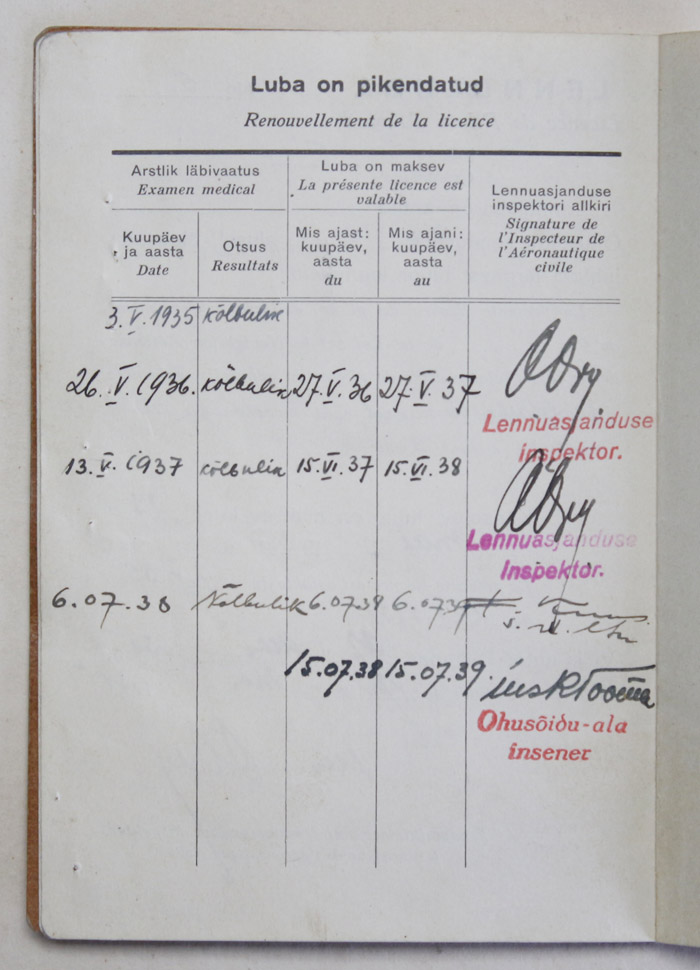 Luba on pikendatud
Renouvellement de la licence
Arstlik läbivaatus
Examen medical
Luba on maksev
La présente licence est
valable
Lennuasjanduse
inspektori allkiri
Signature de
l'Inspecteur de
l'Aéronautique
civile
Kuupäev
ja aasta
Date
Otsus
Resultats
Mis ajast:
kuupäev,
aasta
du
Mis ajani:
kuupäev,
aasta
au
3.V.1935 kõlbulik
26.V.1936. kõlbulik 27.V.36 27.V.37
Lennuasjanduse
inspektor.
13.V.1937 kõlbulik 15.VI.37 15.VI.38
Lennuasjanduse
Inspektor.
6.07.38 Kõlbulik 6.07.38
15.07.38 15.07.39.
Õhusõidu-ala
insener